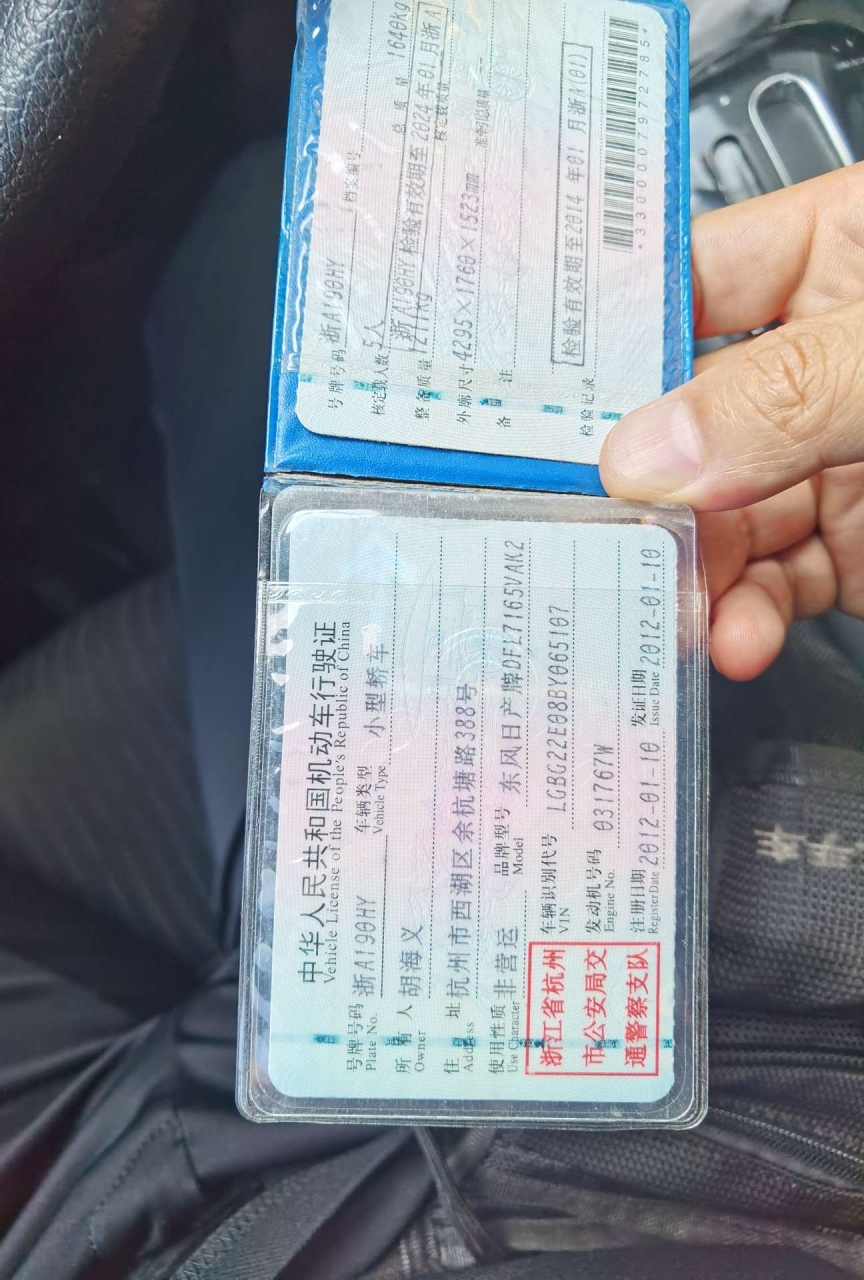 中华人民共和国机动车行驶证
Vehicle License of the People's Republic of China
号牌号码 浙A190HY 车辆类型 小型轿车
Plate No. Vehicle Type
所有人 胡海义
Owner
住址 杭州市西湖区余杭塘路388号
Address
使用性质 非营运 品牌型号 东风日产牌DFL7165VAK2
Use Character Model
浙江省杭州
市公安局交
通警察支队
车辆识别代号 LGBG22E08BY065107
VIN
发动机号码 031767W
Engine No.
注册日期 2012-01-10 发证日期 2012-01-10
Register Date Issue Date
号牌号码 浙A190HY 档案编号
核定载人数 5人 总质量 1640kg
浙A190HY 检验有效期至2024年01月浙A
整备质量 1211kg 核定载质量
外廓尺寸 4295×1760×1523mm 准牵引总质量
备注
检验有效期至2014年01月浙A(01)
检验记录
*3300007972785*